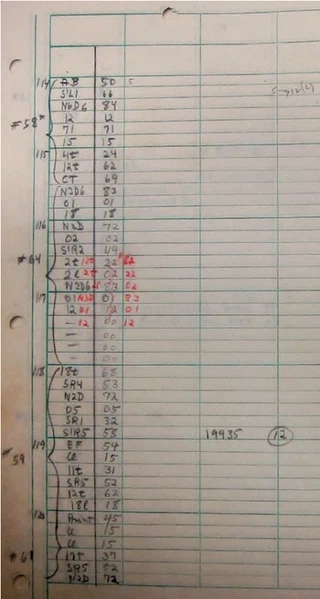 114 AB 50 5
SL1 66
N6D6 84 5→12(L)
12 12
#58* 71 71
15 15
115 4t 24
12t 62
CT 69
N2D6 82
01 01
18 18
116 N2D 72
02 02
S1R2 49
#64 2t 12t 22 62
2l 2t 02 22
N2D6 2l 82 02
117 01 N2D 01 82
12 01 12 01
— 12 00 12
— 00
— 00
— 00
118 18t 68
SR4 53
N2D 72
05 05
SR1 32
S1R5 58 19935 12
119 EF 54
#59 Cl 15
11t 31
SR5 52
12t 62
18l 18
120 Print 45
Cl 15
Cl 15
#61 17t 37
SR5 52
N2D 72